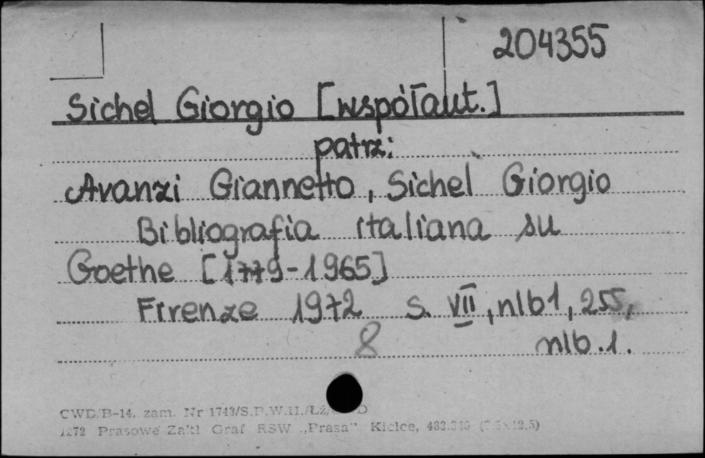 204355
Sichel Giorgio [współaut.]
patrz:
Avanzi Giannetto, Sichel Giorgio
Bibliografia italiana su
Goethe [1779-1965]
Firenze 1972 s. VII, nlb1, 255,
8 nlb.1.
CWD/B-14. zam. Nr 1743/S.P.W.H./Łż/
1272 Prasowe Zakł Graf RSW „Prasa" Kielce,